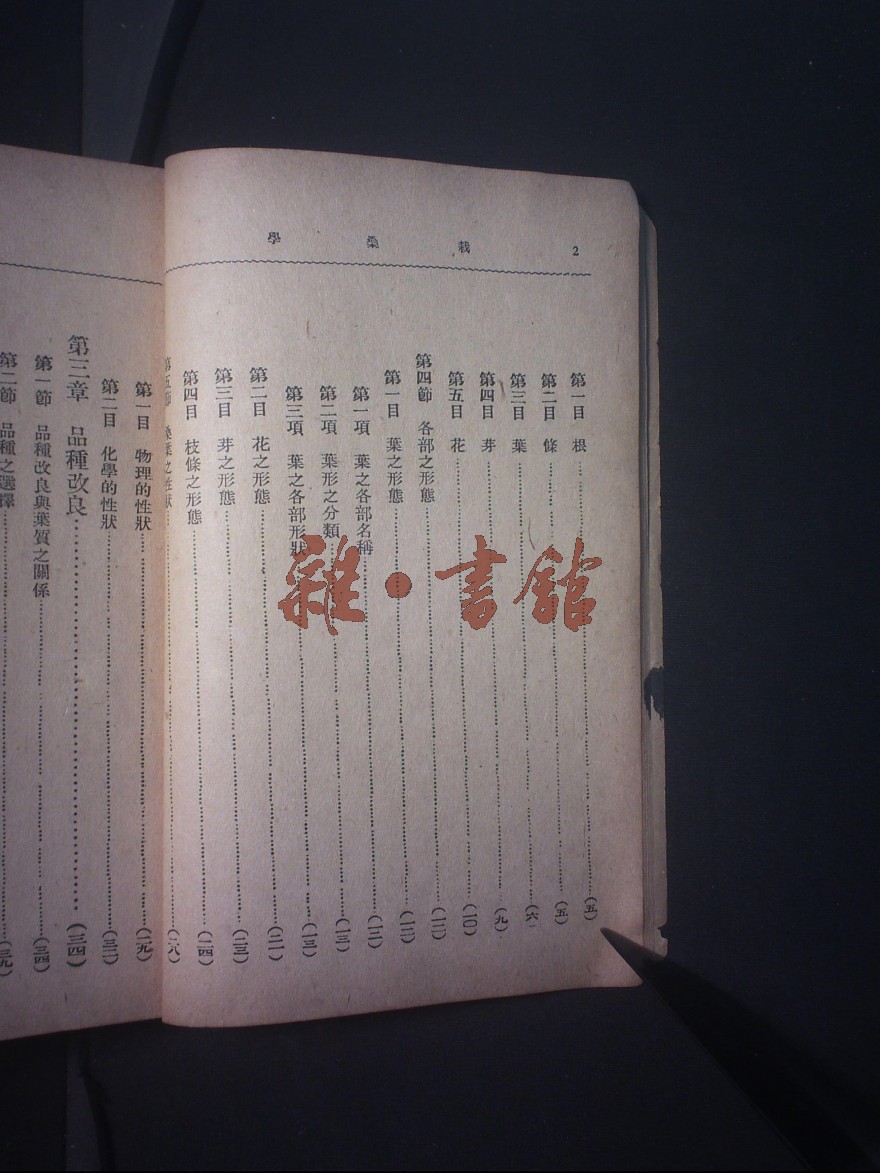 2 栽桑學
第一目 根……(五)
第二目 條……(五)
第三目 葉……(六
第四目 芽……(九)
第五目 花……(一〇)
第四節 各部之形態……(一二)
第一目 葉之形態……(一二)
第一項 葉之各部名稱……(一二)
第二項 葉形之分類……(一三)
第三項 葉之各部形狀……(一三)
第二目 花之形態……(二一)
第三目 芽之形態……(二三)
第四目 枝條之形態……(二四)
第五節 桑葉之性狀……(二八)
第一目 物理的性狀……(二九)
第二目 化學的性狀……(三二)
第三章 品種改良……(三四)
第一節 品種改良與葉質之關係……(三四)
第二節 品種之選擇……(三九)
雜·書館